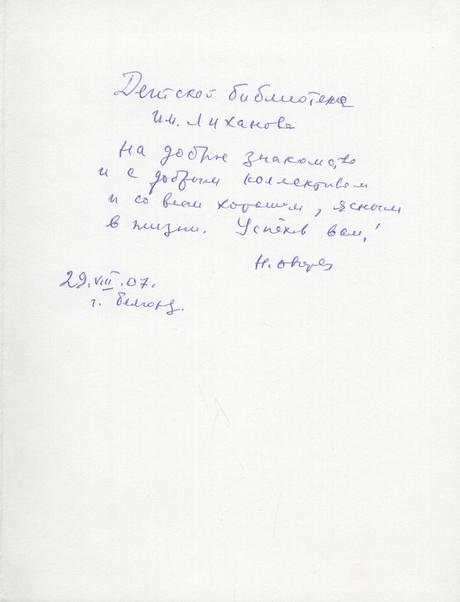 Детской библиотеке
им. Лиханова
на доброе знакомство
и с добрым коллективом
и со всем хорошим, ясным
в жизни. Успехов вам!
29.VIII.07.
г. Белгород.